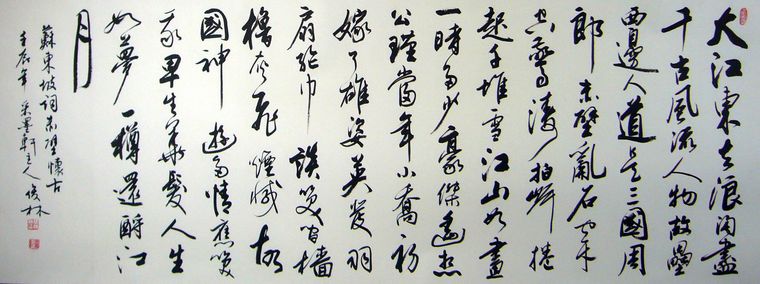 大江東去浪淘盡
千古風流人物故壘
西邊人道是三國周
郎赤壁亂石穿
空驚濤拍岸捲
起千堆雪江山如畫
一時多少豪傑遙想
公瑾當年小喬初
嫁了雄姿英發羽
扇綸巾談笑間檣
櫓灰飛煙滅故
國神遊多情應笑
我早生華髮人生
如夢一樽還酹江
月
蘇東坡詞赤壁懷古
壬辰年采墨軒主人俊林